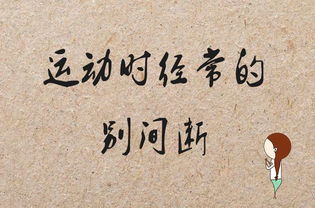 运动时经常的
别间断